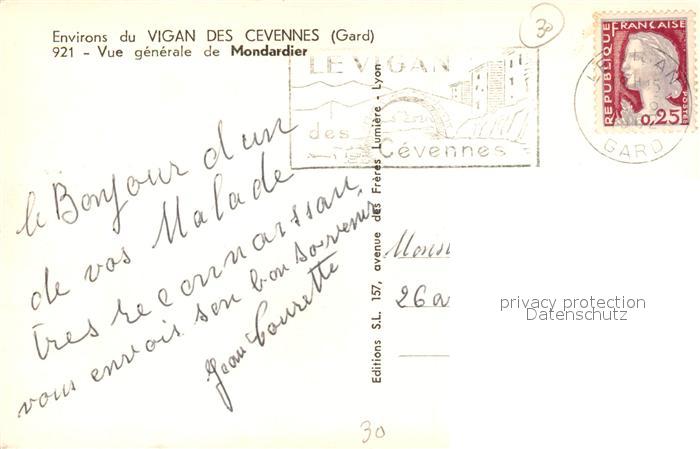 Environs du VIGAN DES CEVENNES (Gard)
921 - Vue générale de Mondardier
30
LE VIGAN
des
Cévennes
GARD
REPUBLIQUE
FRANÇAISE
POSTES
0,25
le Bonjour d'un
de vos Malade
tres reconnaissan
vous envois son bon souvenir
Jean
Editions S.L. 157, avenue des Frères Lumière - Lyon
26
privacy protection
Datenschutz
30